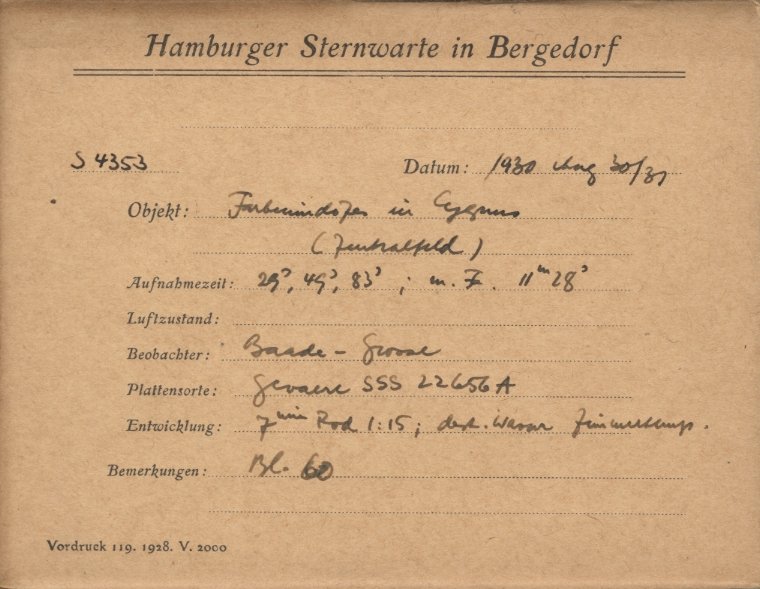 Hamburger Sternwarte in Bergedorf
S 4353 Datum: 1930 Aug 30/31
Objekt: Farbenindizes in Cygnus
(Zentralfeld)
Aufnahmezeit: 29ˢ, 49ˢ, 83ˢ ; m. F. 11ᵐ 28ˢ
Luftzustand:
Beobachter: Baade –
Plattensorte: Gevaert SSS 22656 A
Entwicklung: 7ᵐⁱⁿ Rod 1:15; dest. Wasser Zimmertemp.
Bemerkungen: Bl. 60
Vordruck 119. 1928. V. 2000